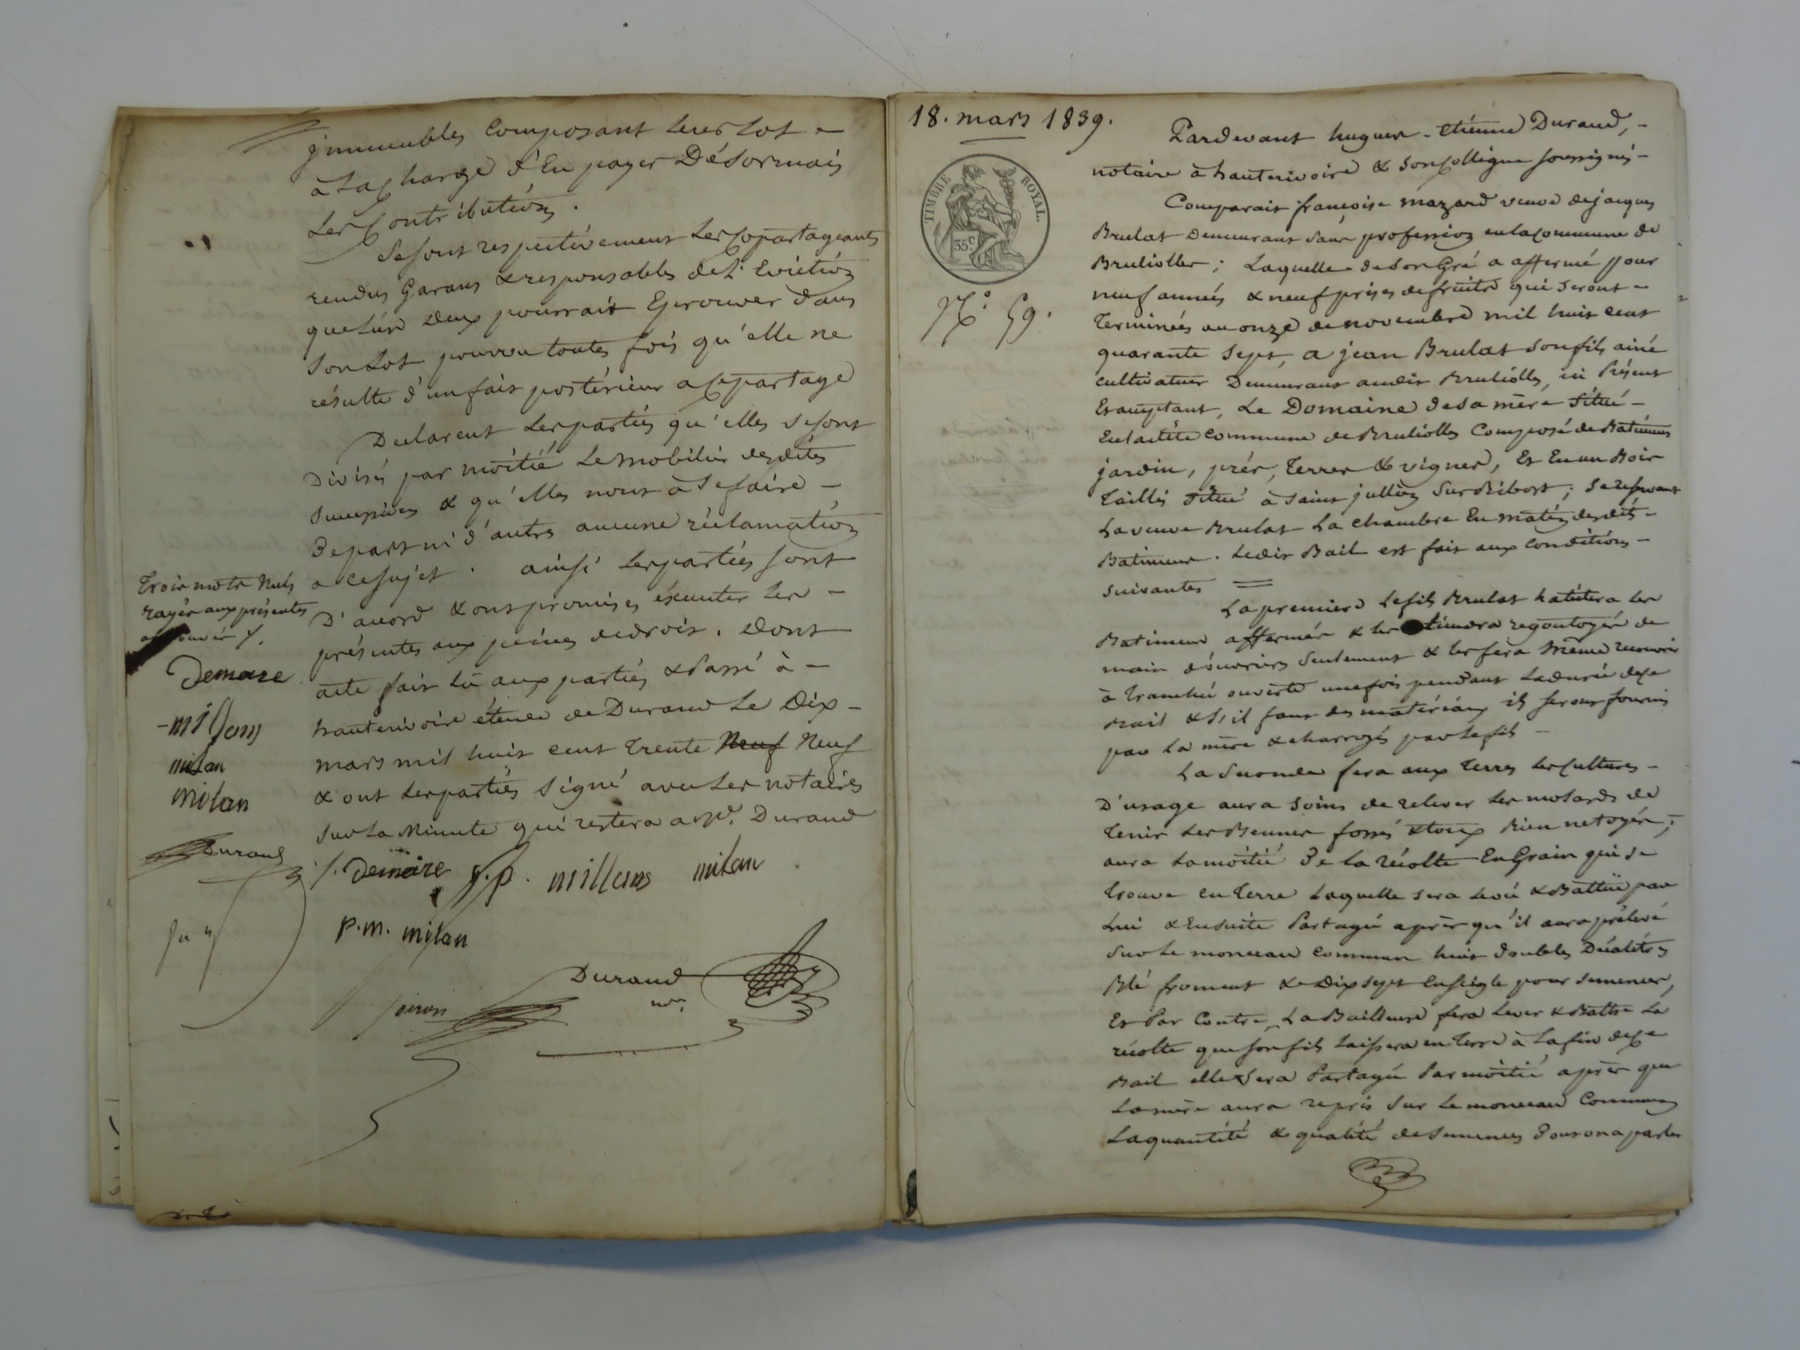 jmmeubles composant leurs Lot -
à La charge d'En payer Désormais
Les Contributions.
Se sont respectivement Les Copartageants
rendus Garans & responsables de l'Eviction
que L'un deux pourrait Eprouver dans
son Lot pourvu toutes fois qu'elle ne
résulte d'un fait postérieur a ce partage
Declarent Les parties qu'elles se sont
Divisés par moitié Le mobilier desdites
successions & qu'elles n'ont à se faire -
de part ni d'autre aucune réclamation
a ce sujet. ainsi Les parties sont
D'accord & ont promis es exécuter Les -
présentes aux peines de droit. Dont
acte fait Lû aux parties & Passé à -
hauterivoire étude de Durand Le Dix -
mars mil huit cent Trente Neuf Neuf
& ont Les parties signé avec Les notaires
sur La Minute qui restera a Me. Durand
Trois mots Nuls
rayés aux présentes
approuvés
Demare
millons
milan
milan
Durand
Demare p.p. millons milan
P.M. milan
Durand
nre.
18. mars 1839.
TIMBRE ROYAL.
35.c
No. 59.
Pardevant hugues - etiénne Durand, -
notaire à hauterivoire & son Collègue soussignés -
Comparait françoise mazard veuve de jacques
Brulat Demeurant sans profession en la commune de
Bruliolles; Laquelle de son Gré a affermé pour
neuf années & neuf prises de fruits qui seront -
Terminées au onze de novembre mil huit cent
quarante sept, a jean Brulat son fils ainé
cultivateur Demeurant audit Bruliolles, ici Présent
Et acceptant, Le Domaine de sa mère situé -
En La dite commune de Bruliolles Composé de Batiments
jardin, prés, Terres & vignes, Et En un Bois
Taillis situé à saint jullien sur Bibost; se reservant
La veuve Brulat La chambre En matin desdits -
Batiments. Ledit Bail est fait aux Conditions -
suivantes =
La premiere Le fils Brulat habitera Les
Batiments affermés & les tiendra regoutoyés de
main d'ouvriers seulement & les fera même recouvrir
à tranchée ouverte une fois pendant La durée de ce
Bail & s'il faut des matériaux ils seront fournis
par La mère & charroyés par Le fils -
La seconde fera aux Terres Les Cultures -
D'usage aura soins de relever Les molards de
Tenir Les Bennes fossés & tous Bien netoyés;
aura La moitié de La récolte En Grain qui se
Trouve en Terre Laquelle sera Levée & Battue par
Lui & Ensuite Partagée après qu'il aura prélevé
sur Le monceau commun huit doubles Décalitres
Blé froment & Dix sept En seigle pour semences,
Et Par Contre, La Bailleuse fera Lever & Battre La
récolte que son fils laissera en Terre à La fin de ce
Bail elle sera Partagée Par moitié après que
La mère aura repris sur Le monceau Commun
La quantité & qualité de semences dont on a parlé